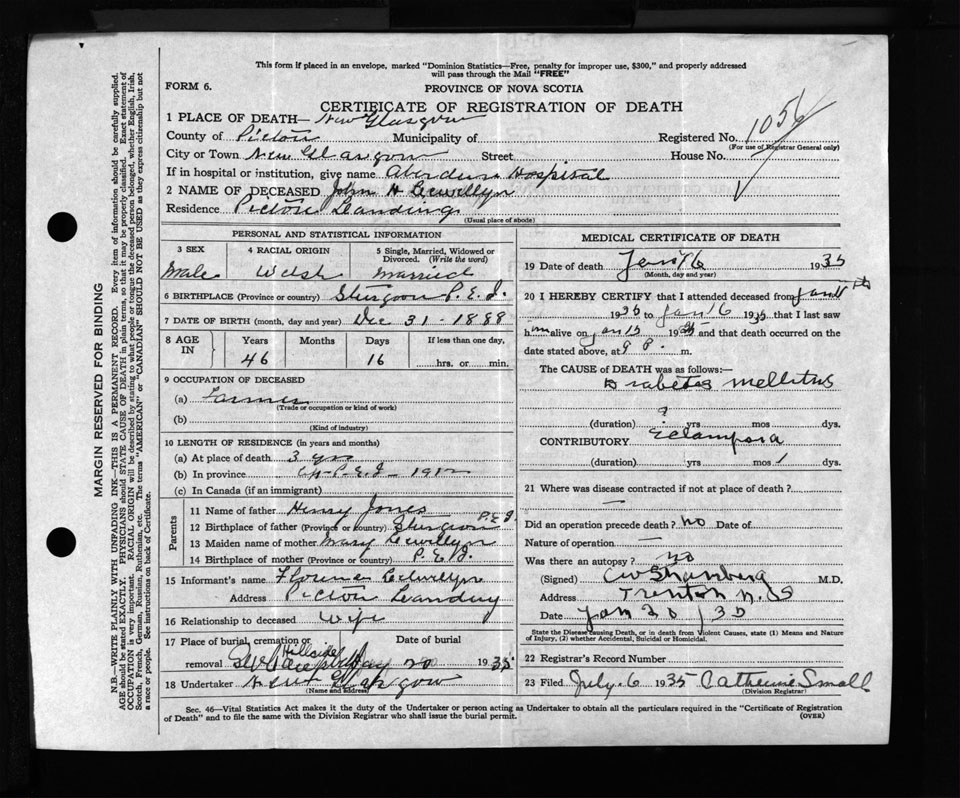 This form if placed in an envelope, marked "Dominion Statistics—Free, penalty for improper use, $300," and properly addressed
will pass through the Mail "FREE"
FORM 6.
PROVINCE OF NOVA SCOTIA
CERTIFICATE OF REGISTRATION OF DEATH
1 PLACE OF DEATH— New Glasgow
County of Pictou Municipality of Registered No. 1056
(For use of Registrar General only)
City or Town New Glasgow Street House No.
If in hospital or institution, give name Aberdeen Hospital
2 NAME OF DECEASED John H Llewellyn
Residence Pictou Landing
(Usual place of abode)
PERSONAL AND STATISTICAL INFORMATION
3 SEX 4 RACIAL ORIGIN 5 Single, Married, Widowed or Divorced. (Write the word)
Male Welsh Married
6 BIRTHPLACE (Province or country) Sturgeon P.E.I.
7 DATE OF BIRTH (month, day and year) Dec 31-1888
8 AGE IN Years Months Days If less than one day,
46 16 hrs. or min.
9 OCCUPATION OF DECEASED
(a) Farmer
(Trade or occupation or kind of work)
(b)
(Kind of industry)
10 LENGTH OF RESIDENCE (in years and months)
(a) At place of death 3 yrs
(b) In province P.E.I. 1912
(c) In Canada (if an immigrant)
Parents
11 Name of father Henry Jones
12 Birthplace of father (Province or country) Sturgeon P.E.I.
13 Maiden name of mother Mary Llewellyn
14 Birthplace of mother (Province or country) P.E.I.
15 Informant's name Llewellyn
Address Pictou Landing
16 Relationship to deceased Wife
17 Place of burial, cremation or removal Hillside Date of burial 20 1935
18 Undertaker New Glasgow
(Name and address)
MEDICAL CERTIFICATE OF DEATH
19 Date of death Jan 16 1935
(Month, day and year)
20 I HEREBY CERTIFY that I attended deceased from Jan
1935 to Jan 16 1935 that I last saw
him alive on Jan 15 1935 and that death occurred on
date stated above, at 9 m.
The CAUSE OF DEATH was as follows:—
Diabetes Mellitus
(duration) ? yrs mos dys.
CONTRIBUTORY Eclampsia
(duration) yrs mos 1 dys.
21 Where was disease contracted if not at place of death?
—
Did an operation precede death? no Date of
Nature of operation —
Was there an autopsy? no
(Signed) M.D.
Address Trenton N.S
Date Jan 30/35
State the Disease causing Death, or in death from Violent Causes, state (1) Means and Nature
of Injury, (2) whether Accidental, Suicidal or Homicidal.
22 Registrar's Record Number
23 Filed July 6 1935 Catherine Small
(Division Registrar)
Sec. 46—Vital Statistics Act makes it the duty of the Undertaker or person acting as Undertaker to obtain all the particulars required in the "Certificate of Registration
of Death" and to file the same with the Division Registrar who shall issue the burial permit. (OVER)
MARGIN RESERVED FOR BINDING
N.B.—WRITE PLAINLY WITH UNFADING INK—THIS IS A PERMANENT RECORD. Every item of information should be carefully supplied.
AGE should be stated EXACTLY. PHYSICIANS should STATE CAUSE OF DEATH in plain terms, so that it may be properly classified. Exact statement of
OCCUPATION is very important. RACIAL ORIGIN will be described by stating to what people or tongue the deceased person belonged, whether English, Irish,
Scotch, French, German, Russian, Ruthenian, etc. The terms "AMERICAN" or "CANADIAN" SHOULD NOT BE USED as they express citizenship but not
a race or people. See instructions on back of Certificate.